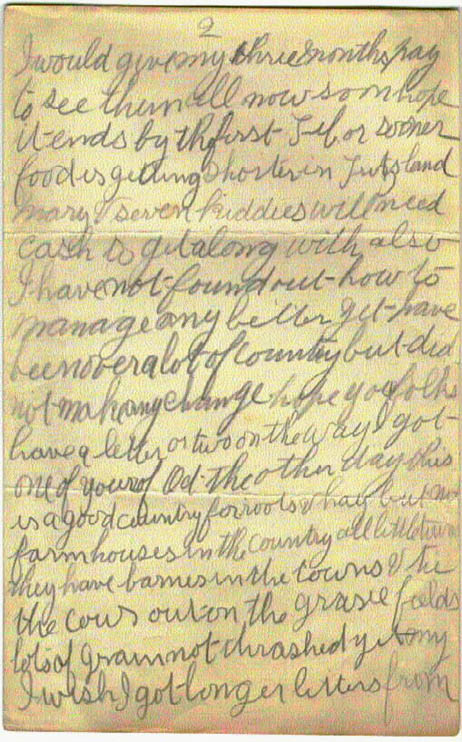 2
I would give my three months pay
to see them all now so am hope
it ends by the first Feb. or sooner
food is getting shorter in
Mary & seven kiddies will need
cash to get along with also
I have not found out how to
manage any better yet have
been over a lot of country but did
not make any change hope you folks
have a letter or two on the way I got
one of yours of Oct. the other day this
is a good country for roots & hay but no
farm houses in the country all little towns
they have barnes in the towns & tie
the cows out on the grasse fields
lots of grain not thrashed yet my
I wish I got longer letters from